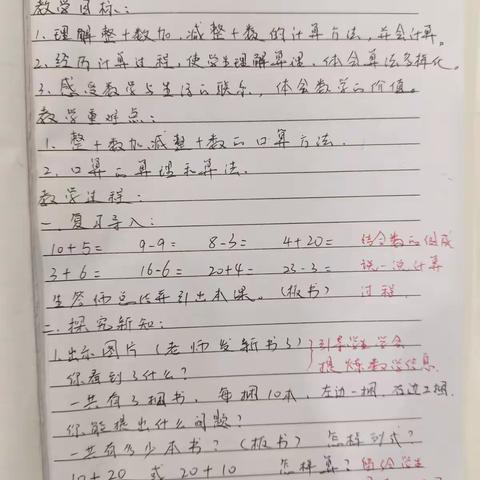 教学目标：
1. 理解整十数加、减整十数的计算方法，并会计算。
2. 经历计算过程，使学生理解算理，体会算法多样化。
3. 感受数学与生活的联系，体会数学的价值。
教学重难点：
1. 整十数加减整十数的口算方法.
2. 口算的算理和算法.
教学过程：
一. 复习导入：
10+5= 9-9= 8-3= 4+20= 结合数的组成
3+6= 16-6= 20+4= 23-3= 说一说计算
生答师总结并引出本课。（板书） 过程.
二. 探究新知：
1. 出示图片（老师发新书了） 引导学生学会
你看到了什么？ 提炼数学信息.
一共有3捆书，每捆10本，左边一捆，右边2捆.
你能提出什么问题？
一共有多少本书？（板书） 怎样列式？
10+20 或 20+10 怎样算？ 学生